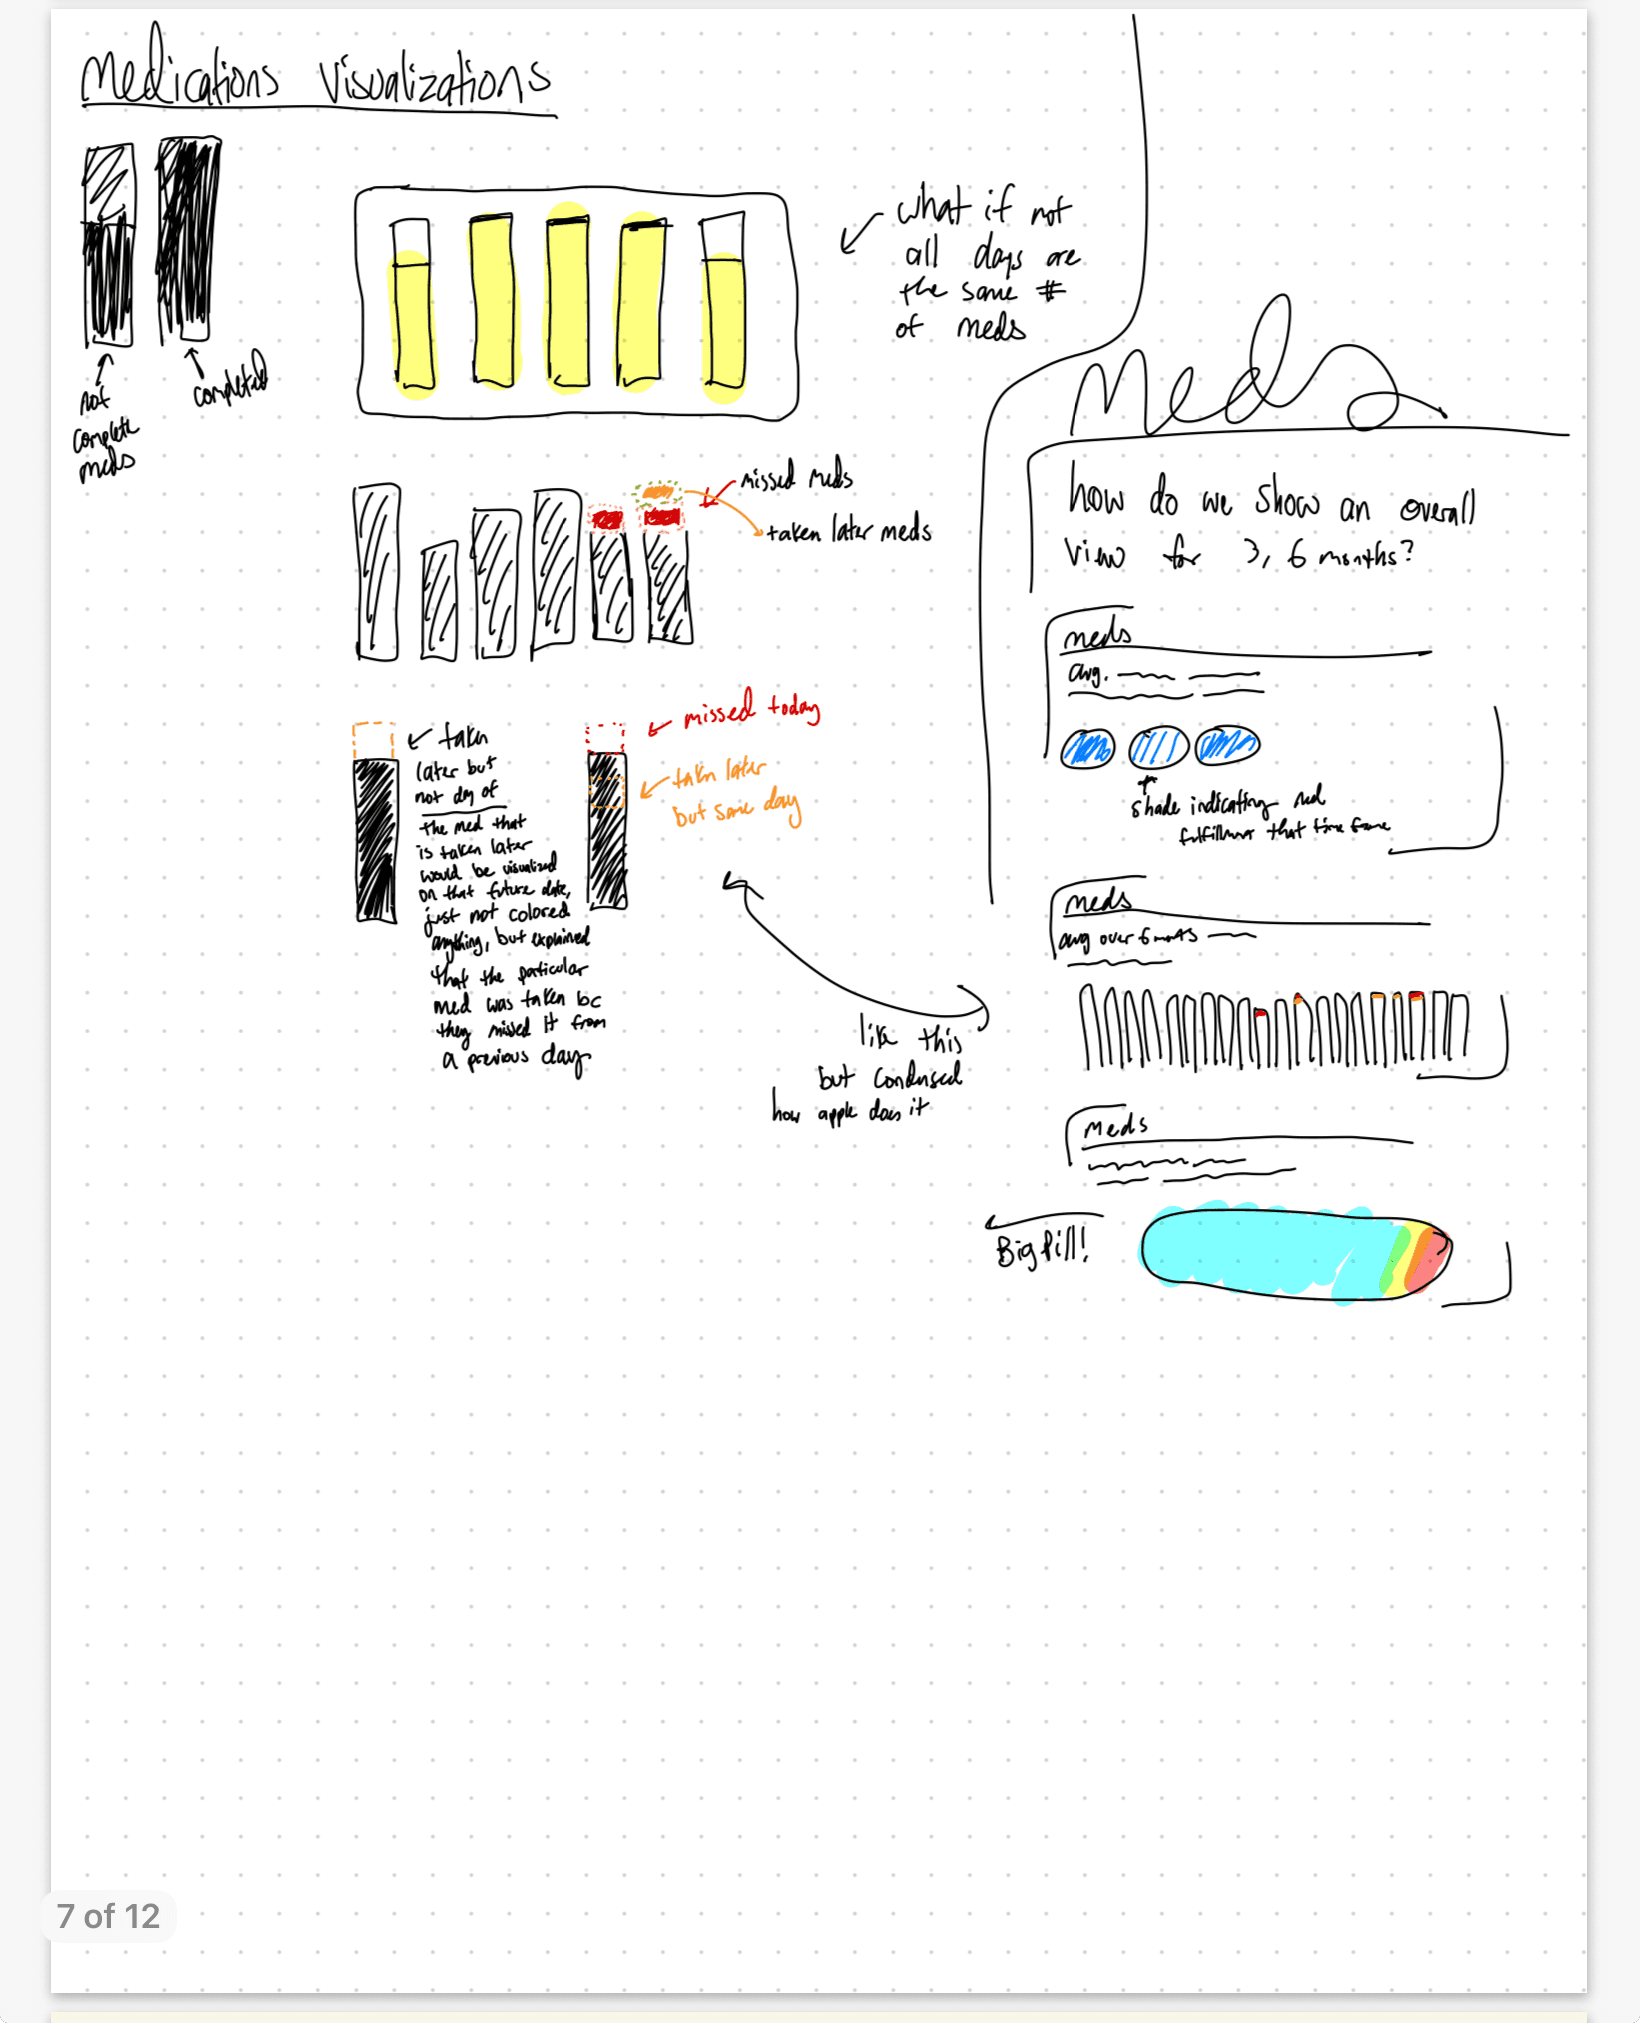 Medications Visualizations
not
complete
meds
completed
what if not
all days are
the same #
of meds
missed meds
taken later meds
taken
later but
not day of
the med that
is taken later
would be visualized
on that future date,
just not colored
anything, but explained
that the particular
med was taken bc
they missed it from
a previous day
missed today
taken later
but same day
like this
but condensed
how apple does it
Meds
how do we show an overall
view for 3, 6 months?
meds
avg.
shade indicating med
that time frame
meds
avg over 6 months
Meds
Big Pill!
7 of 12